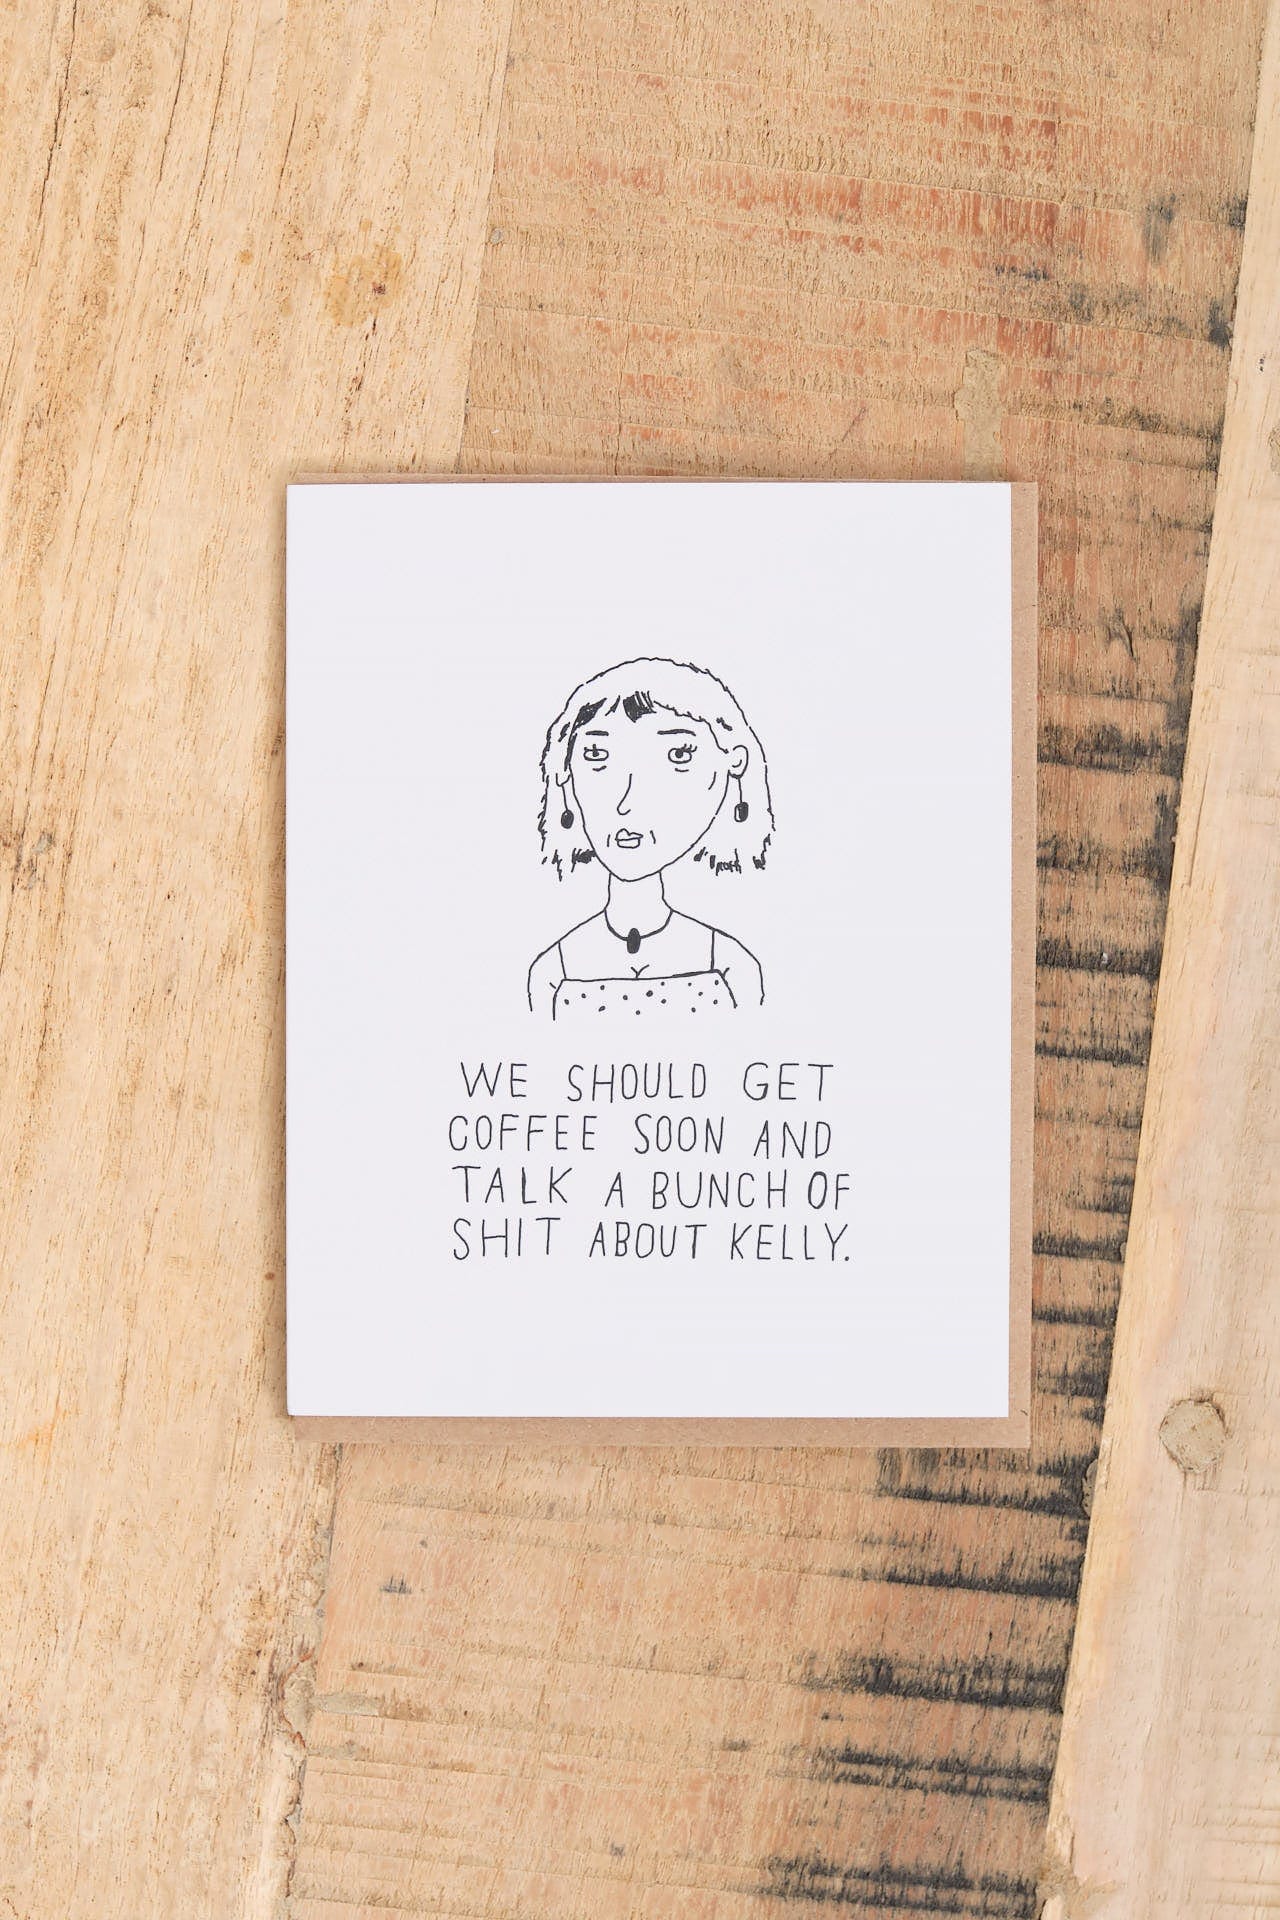 WE SHOULD GET
COFFEE SOON AND
TALK A BUNCH OF
SHIT ABOUT KELLY.